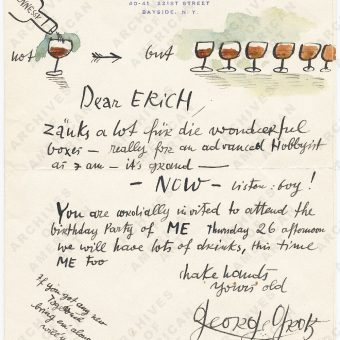 40-41, 221ST STREET
BAYSIDE, N.Y.
HENNESSY
not → but
Dear ERICH,
Zänks a lot für die woonderful
boxes – really for an advanced Hobbyist
as I am – it's grand –
– NOW – listen: boy!
You are cordially invited to attend the
birthday Party of ME Thursday 26 afternoon
we will have lots of drinks, this time
ME too
shake hands
yours old
George Grosz
If you got any new
bring 'em along